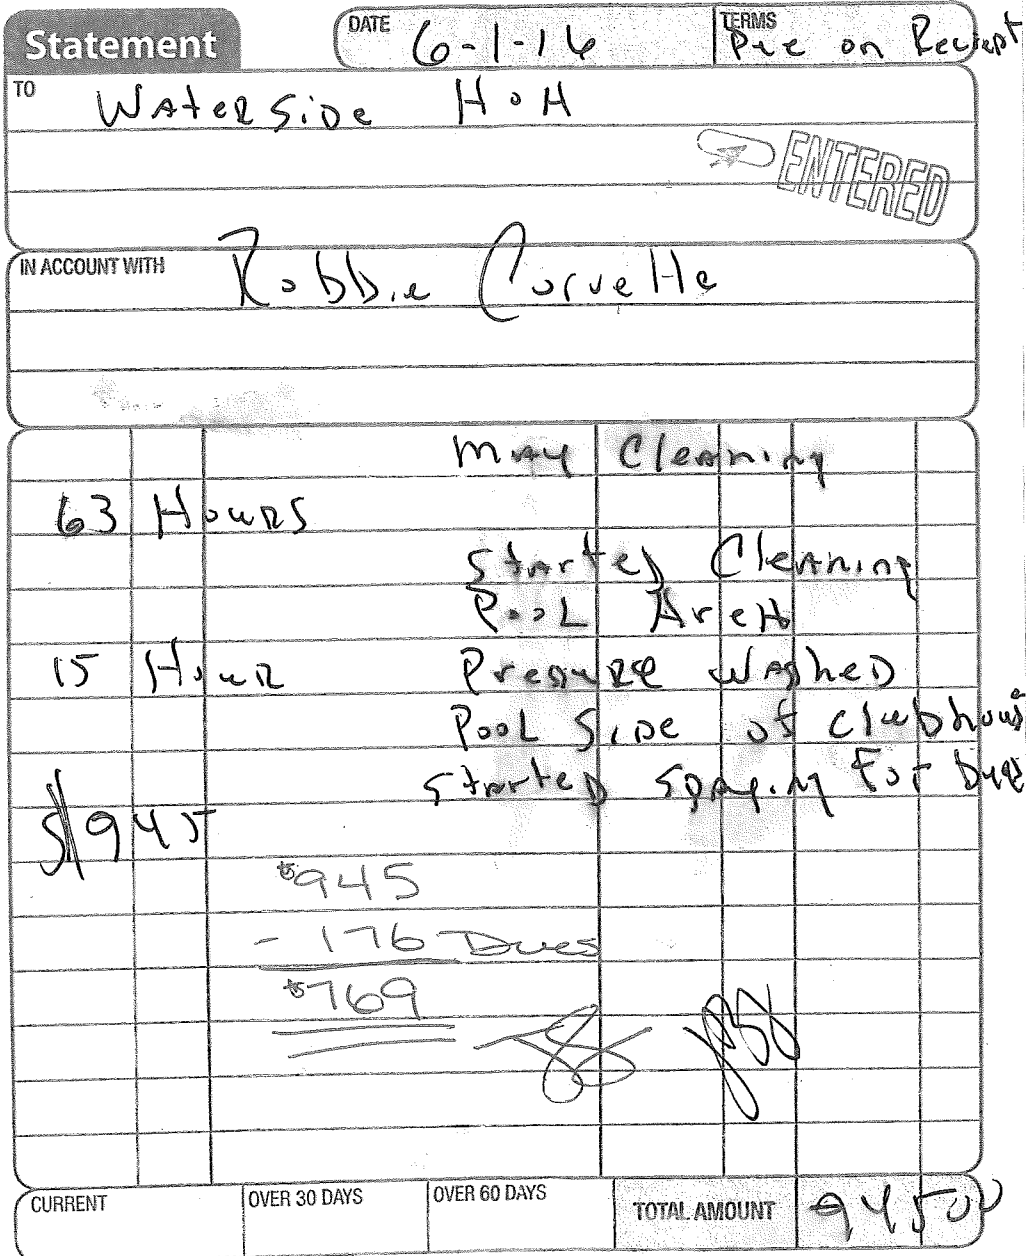 Statement
DATE 6-1-16
TERMS Due on Reciept
TO WAterSiDe HoA
ENTERED
IN ACCOUNT WITH Robbie Corvette
MAy CleAning
63 HouRS
StArteD CleAning
PooL AreA
15 HouR PresuRe WAshed
PooL SiDe of Clubhouse
StArteD SprAying For bugs
$945
$945
- 176 Dues
$769
CURRENT
OVER 30 DAYS
OVER 60 DAYS
TOTAL AMOUNT 945 00